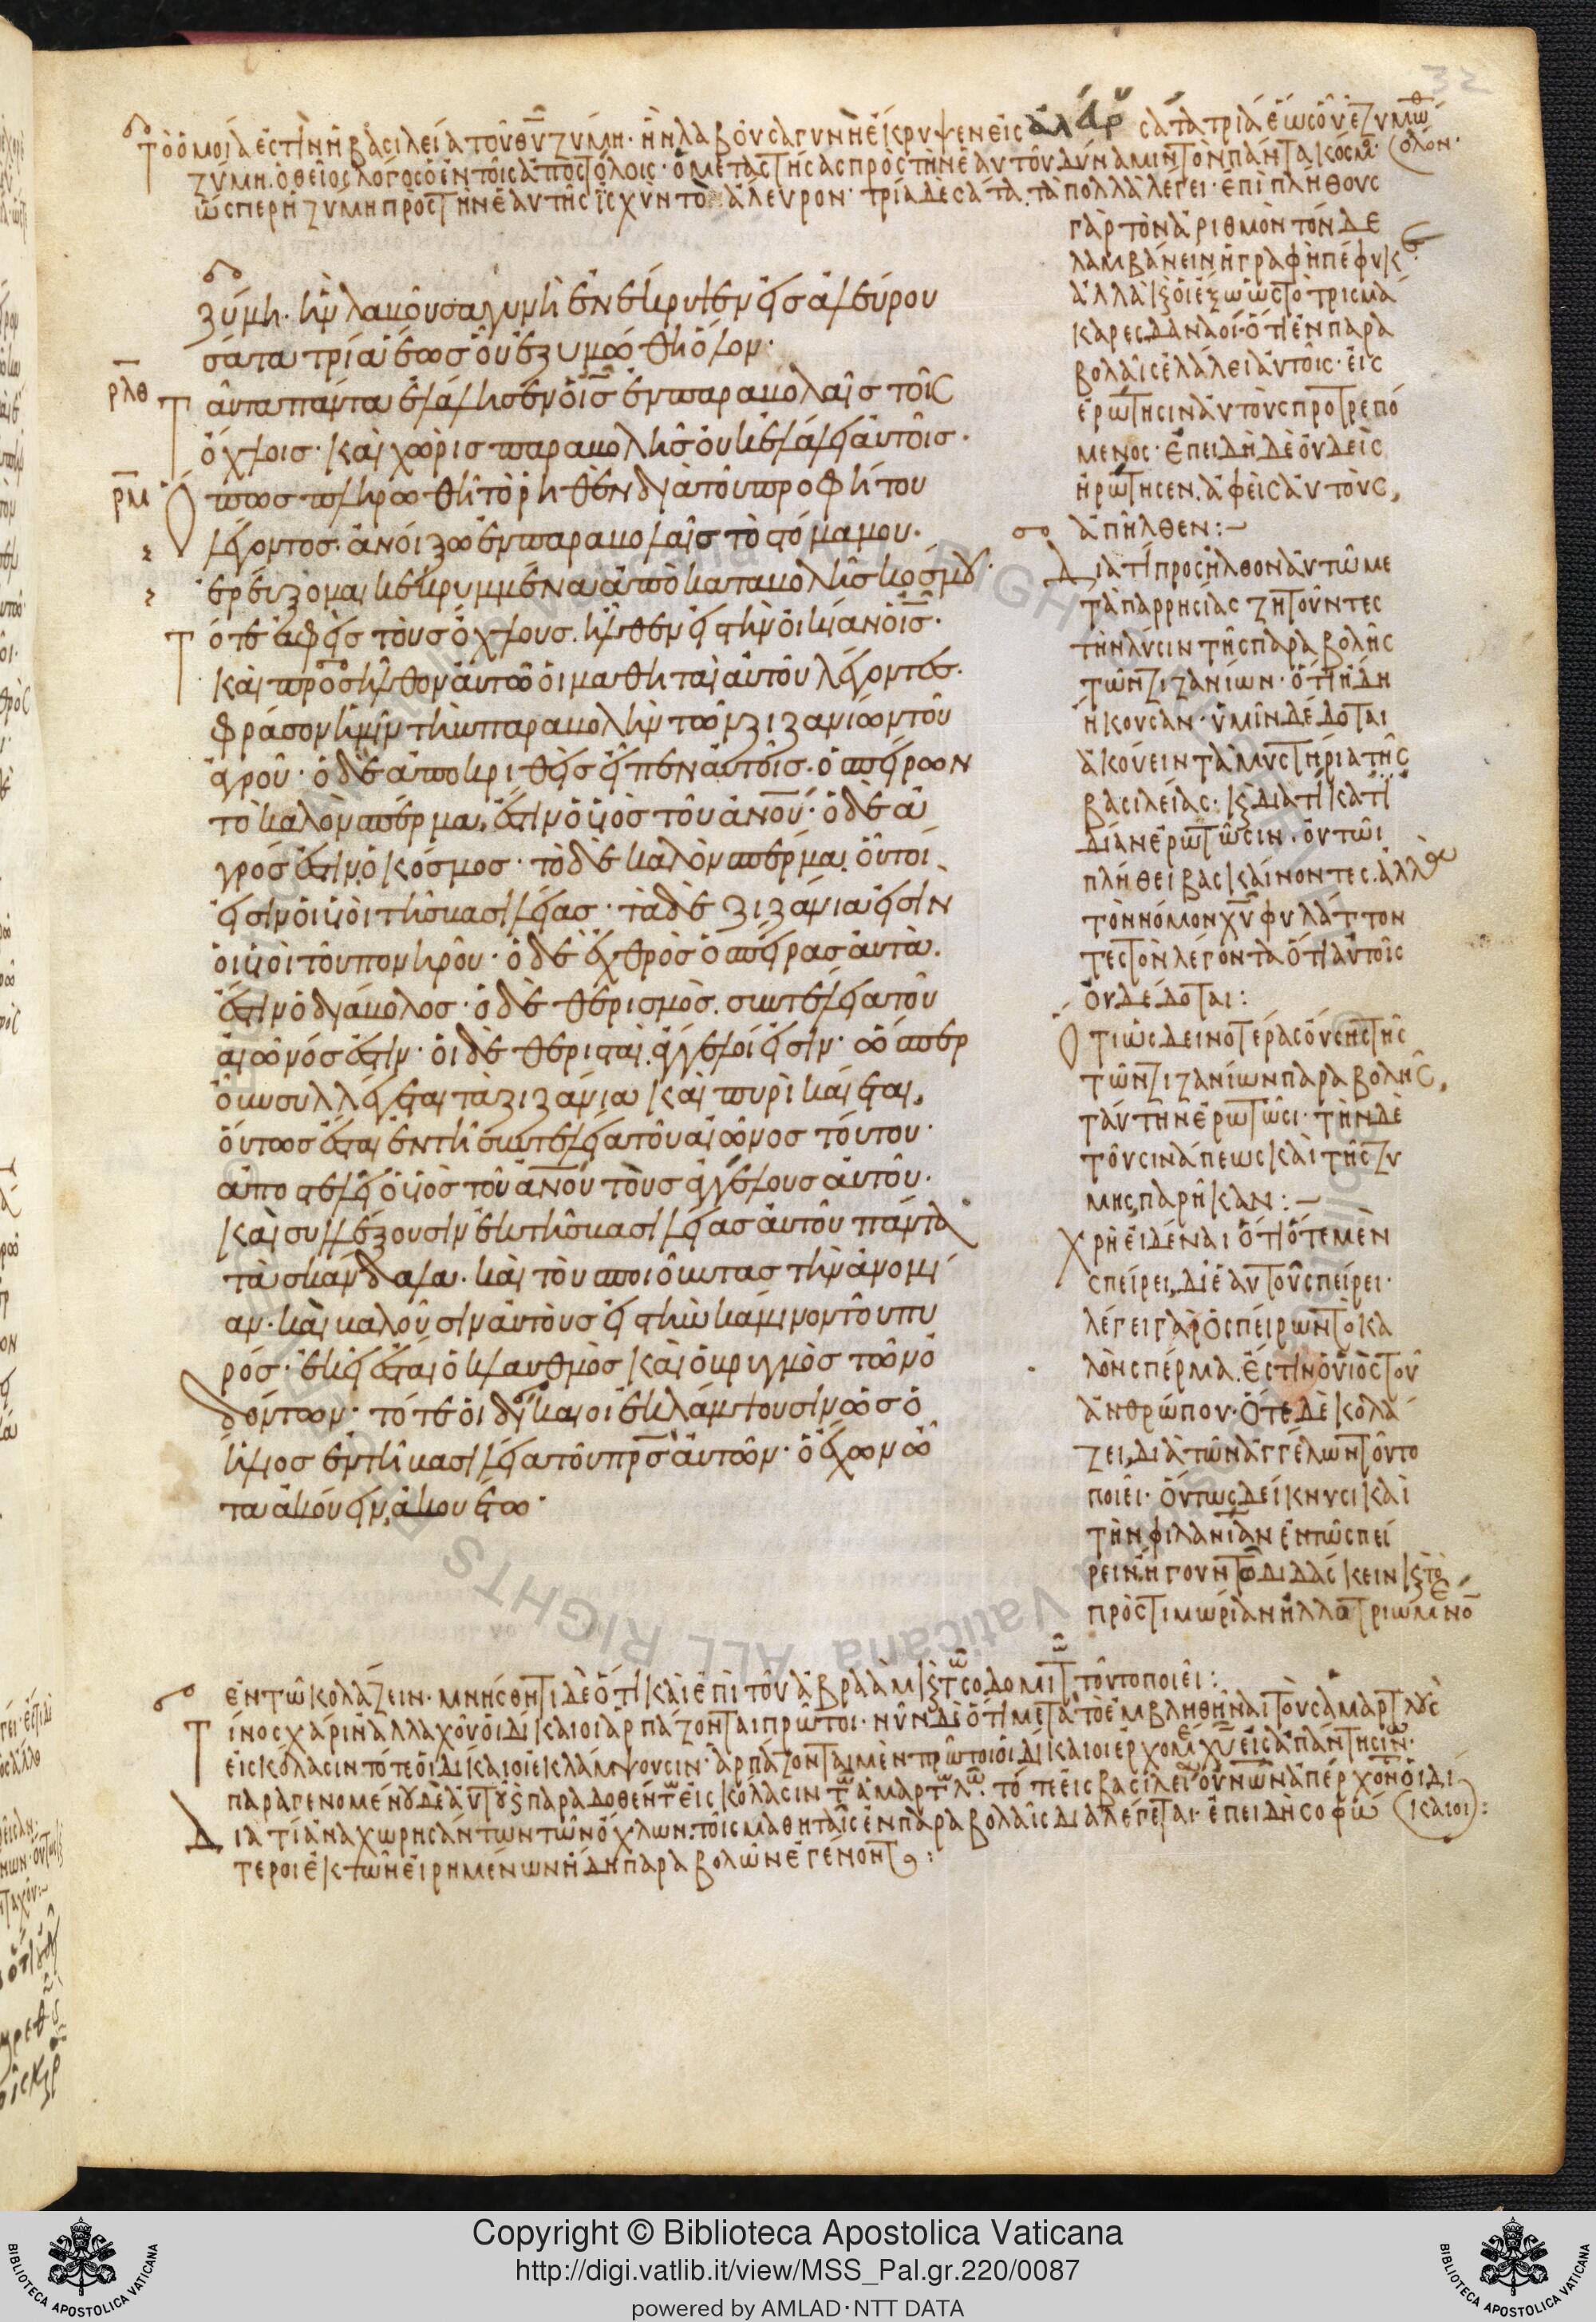 32
τὸ ὁμοία ἐστὶν ἡ βασιλεία τοῦ θῡ ζύμη· ἣν λαβοῦσα γυνὴ ἐνέκρυψεν εἰς ἀλεύρου σάτα τρία ἕως οὗ ἐζυμώθ
ὅλον·
ζύμη. ὁ θεῖος λόγος ὁ ἐν τοῖς ἀποστόλοις· ὁ μεταστήσας πρὸς τὴν ἑαυτοῦ δύναμιν τὸν πάντα κόσμ·
ὥσπερ ἡ ζύμη πρὸς τὴν ἑαυτῆς ἰσχὺν τὸ ἄλευρον· τρία δὲ σάτα. τὰ πολλὰ λέγει· ἐπὶ πλήθους
γὰρ τὸν ἀριθμὸν τόνδε
λαμβάνειν ἡ γραφὴ πέφυκε
ἀλλὰ κ οἱ ἔξω ὡς τὸ τρισμά
καρες δαναοί· ὅτι ἐν παρα
βολαῖς ἐλάλει αὐτοῖς· εἰς
ἐρώτησιν αὐτοὺς προτρεπό
μενος· ἐπειδὴ δὲ οὐδεὶς
ἠρώτησεν. ἀφεὶς αὐτοὺς,
ἀπῆλθεν:~
ζύμη. ἣν λαβοῦσα γυνὴ ἐνέκρυψεν εἰς ἀλεύρου
σάτα τρία ἕως οὗ ἐζυμώθη ὅλον·
ρλθ
ταῦτα πάντα ἐλάλησεν ὁ ις̄ ἐν παραβολαῖς τοῖς
ὄχλοις· καὶ χωρὶς παραβολῆς οὐκ ἐλάλει αὐτοῖς·
ρμ
ὅπως πληρωθῆ τὸ ῥηθὲν διὰ τοῦ προφήτου
λέγοντος· ἀνοίξω ἐν παραβολαῖς τὸ στόμα μου·
ἐρεύξομαι κεκρυμμένα ἀπὸ καταβολῆς κόσμου·
τότε ἀφεὶς τοὺς ὄχλους. ἦλθεν εἰς τὴν οἰκίαν ὁ ις̄·
καὶ προσῆλθον αὐτῶ οἱ μαθηταὶ αὐτοῦ λέγοντες·
φράσον ἡμῖν τὴν παραβολὴν τῶν ζιζανίων τοῦ
ἀγροῦ· ὁ δὲ ἀποκριθεὶς εἶπεν αὐτοῖς· ὁ σπείρων
τὸ καλὸν σπέρμα, ἐστὶν ὁ υἱὸς τοῦ ἀνου̅· ὁ δὲ ἀ
γρός ἐστιν ὁ κόσμος· τὸ δὲ καλὸν σπέρμα. οὗτοι
εἰσὶν οἱ υἱοὶ τῆς βασιλείας· τὰ δὲ ζιζάνια εἰσὶν
οἱ υἱοὶ τοῦ πονηροῦ· ὁ δὲ ἐχθρὸς ὁ σπείρας αὐτὰ.
ἐστὶν ὁ διάβολος· ὁ δὲ θερισμὸς. συντέλεια τοῦ
αἰῶνός ἐστιν· οἱ δὲ θερισταὶ. ἄγγελοί εἰσιν· ὥσπερ
οὖν συλλέγεται τὰ ζιζάνια καὶ πυρὶ καίεται,
οὕτως ἔσται ἐν τῆ συντελεία τοῦ αἰῶνος τούτου·
ἀποστελεῖ ὁ υἱὸς τοῦ ἀνου̅ τοὺς ἀγγέλους αὐτοῦ·
καὶ συλλέξουσιν ἐκ τῆς βασιλείας αὐτοῦ πάντα
τὰ σκάνδαλα. καὶ τοὺς ποιοῦντας τὴν ἀνομί
αν· καὶ βαλοῦσιν αὐτοὺς εἰς τὴν κάμινον τοῦ πυ
ρός· ἐκεῖ ἔσται ὁ κλαυθμὸς καὶ ὁ βρυγμὸς τῶν ὀ
δόντων· τότε οἱ δίκαιοι ἐκλάμψουσιν ὡς ὁ
ἥλιος ἐν τῆ βασιλεία τοῦ πρς̄ αὐτῶν· ὁ ἔχων ὦ
τα ἀκούειν, ἀκουέτω·
Διατί προσῆλθον αὐτῶ με
τὰ παρρησίας ζητοῦντες
τὴν λύσιν τῆς παραβολῆς
τῶν ζιζανίων· ὅτι ἤδη
ἤκουσαν· ὑμῖν δέδοται
ἀκούειν τὰ μυστήρια τῆς
βασιλείας· κ διατί κατί
δίαν ἐρωτῶσιν. οὐ τῶι
πλήθει βασκαίνοντες. ἀλλὰ
τὸν νόμον χῡ φυλάττον
τες τὸν λέγοντα ὅτι αὐτοῖς
οὐ δέδοται:
Ὅτι ὡς δεινοτέρας οὔσης τῆς
τῶν ζιζανίων παραβολῆς,
ταύτην ἐρωτῶσι· τὴν δὲ
τοῦ σινάπεως καὶ τῆς ζύ
μης παρῆκαν:~
Χρὴ εἰδέναι ὅτι ὅτε μὲν
σπείρει, δι ἑαυτοῦ σπείρει·
λέγει γάρ ὁ σπείρων τὸ κα
λὸν σπέρμα. ἐστὶν ὁ υἱὸς τοῦ
ἀνθρώπου· ὅτε δὲ κολά
ζει, διὰ τῶν ἀγγέλων τοῦτο
ποιεῖ· οὕτως δείκνυσι καὶ
τὴν φιλανίαν ἐν τῶ σπεί
ρειν, ἤγουν τῶ διδάσκειν κ τὸ
πρὸς τιμωρίαν ἠλλοτριωμένο
ἐν τῶ κολάζειν· μνήσθητι δὲ ὅτι καὶ ἐπὶ τοῦ ἀβραὰμ κ τῶ σοδομιτ τοῦτο ποιεῖ:
Τίνος χάριν ἀλλαχοῦ οἱ δίκαιοι ἁρπάζονται πρῶτοι· νῦν δὲ ὅτι μετὰ τὸ ἐμβληθῆναι τοὺς ἁμαρτλοὺς
εἰς κόλασιν τότε οἱ δίκαιοι ἐκλάμψουσιν· ἁρπάζονται μὲν πρῶτοι οἱ δίκαιοι ἐρχομέ χῡ εἰς ἀπάντησιν·
παραγενομένου δὲ αὐτοῦ κ παραδοθέντ εἰς κόλασιν τῶ ἁμαρτωλω. τότε εἰς βασιλεί οὐνῶν ἀπέρχοντ οἱ δί
καιοι:
Διατί ἀναχωρησάντων τῶν ὄχλων. τοῖς μαθηταῖς ἐν παραβολαῖς διαλέγεται· ἐπειδὴ σοφώ
τεροι ἐκ τῶν εἰρημένων ἤδη παραβολῶν ἐγένοντ:
Copyright © Biblioteca Apostolica Vaticana
http://digi.vatlib.it/view/MSS_Pal.gr.220/0087
powered by AMLAD·NTT DATA
BIBLIOTECA APOSTOLICA VATICANA
BIBLIOTECA APOSTOLICA VATICANA